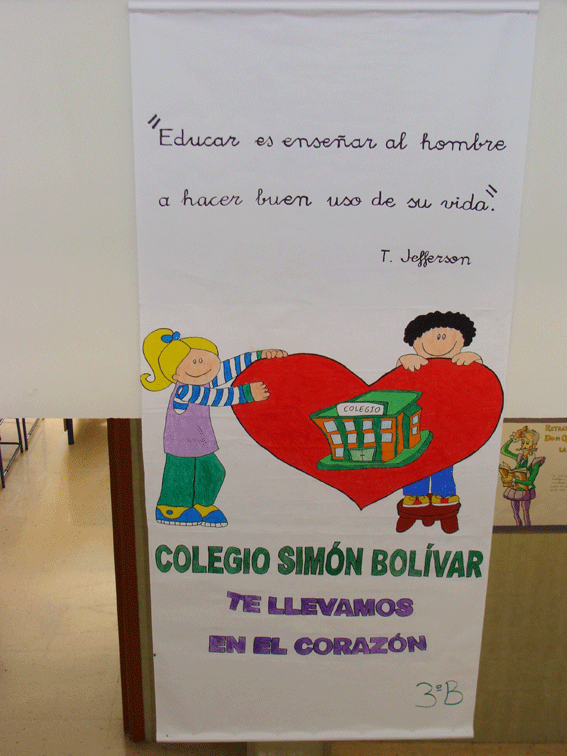 "Educar es enseñar al hombre
a hacer buen uso de su vida."
T. Jefferson
COLEGIO
COLEGIO SIMÓN BOLÍVAR
TE LLEVAMOS
EN EL CORAZÓN
3ºB